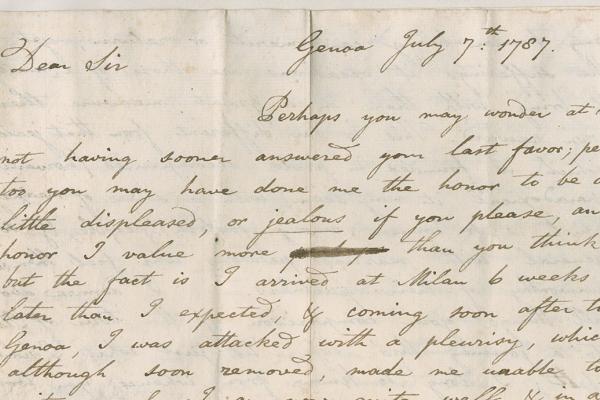 Genoa July 7.th 1787.
Dear Sir
Perhaps you may wonder at
not having sooner answered your last favor; pe
too you may have done me the honor to be a
little displeased, or jealous if you please, an
honor I value more than you think
but the fact is I arrived at Milan 6 weeks
later than I expected, & coming soon after to
Genoa, I was attacked with a pleurisy, whic
although soon removed, made me unable to